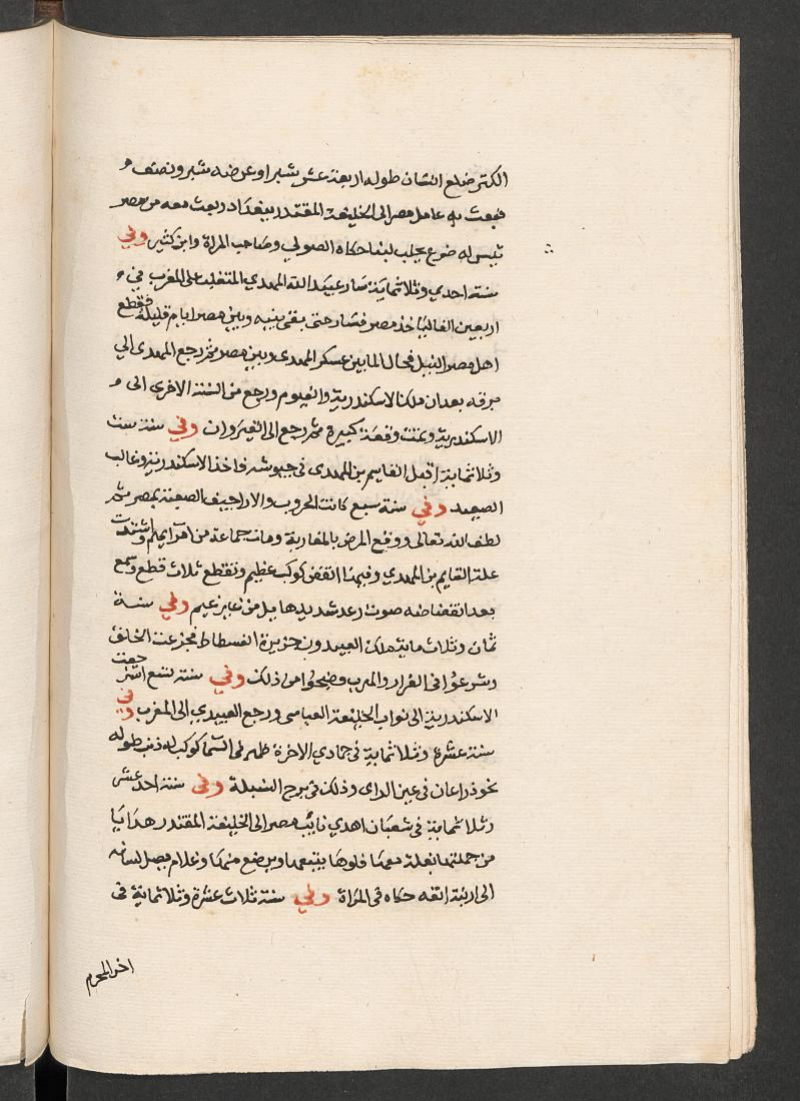 الكتر ضلع انسان طوله اربعة عشر شبرا وعرضه شبر ونصف
فبعث به عامل مصر الى الخليفة المقتدر ببغداد وبعث معه من مصر
تيس له ضرع يحلب لبنا حكاه الصولي وصاحب المراة وابن كثير وفي
سنة احدي وثلاثماية سار عبيد الله المهدي المتغلب على المغرب في
اربعين الفا لياخذ مصر فسار حتى بقى بينه وبين مصر ايام قليلة فقطع
اهل مصر النيل فحال الما بين عسكر المهدى وبين مصر ثم رجع المهدى الي
برقه بعد ان ملك الاسكندرية والفيوم ورجع من السنة الاخري الى
الاسكندرية وتمت وقعة كبيرة ثم رجع الى القيروان وفي سنة ست
وثلاثماية اقبل القايم بن المهدى في جيوشه فاخذ الاسكندرية وغالب
الصعيد وفي سنة سبع كانت الحروب والاراجيف الصعبة بمصر ثم
لطف الله تعالى ووقع المرض بالمغاربة ومات جماعة من امرايهم واشتدت
علة القايم بن المهدي وفيها انقض كوكب عظيم وتقطع ثلاث قطع وسمع
بعد انقضاضه صوت رعد شديد هايل من غير غيم وفي سنة
ثمان وثلاث ماية ملك العبيديون جزيرة الفسطاط فجزعت الخلق
وشرعوا في الفرار والهرب وضجوا من ذلك وفي سنة تسع استرجعت
الاسكندرية الى نواب الخليفة العباسى ورجع العبيدي الى المغرب وفي
سنة عشرة وثلاثماية في جمادي الاخرة ظهر في السما كوكب له ذنب طوله
نحو ذراعان فى عين الراى وذلك في برج السنبلة وفي سنة احد عشر
وثلاثماية في شعبان اهدي نايب مصر الى الخليفة المقتدر هدايا
من جملتها بغلة معها فلوها يتبعها ويرضع منها وغلام يصل لسانه
الى ارنبة انفه حكاه فى المراة وفي سنة ثلاث عشرة وثلاثماية فى
اخر المحرم